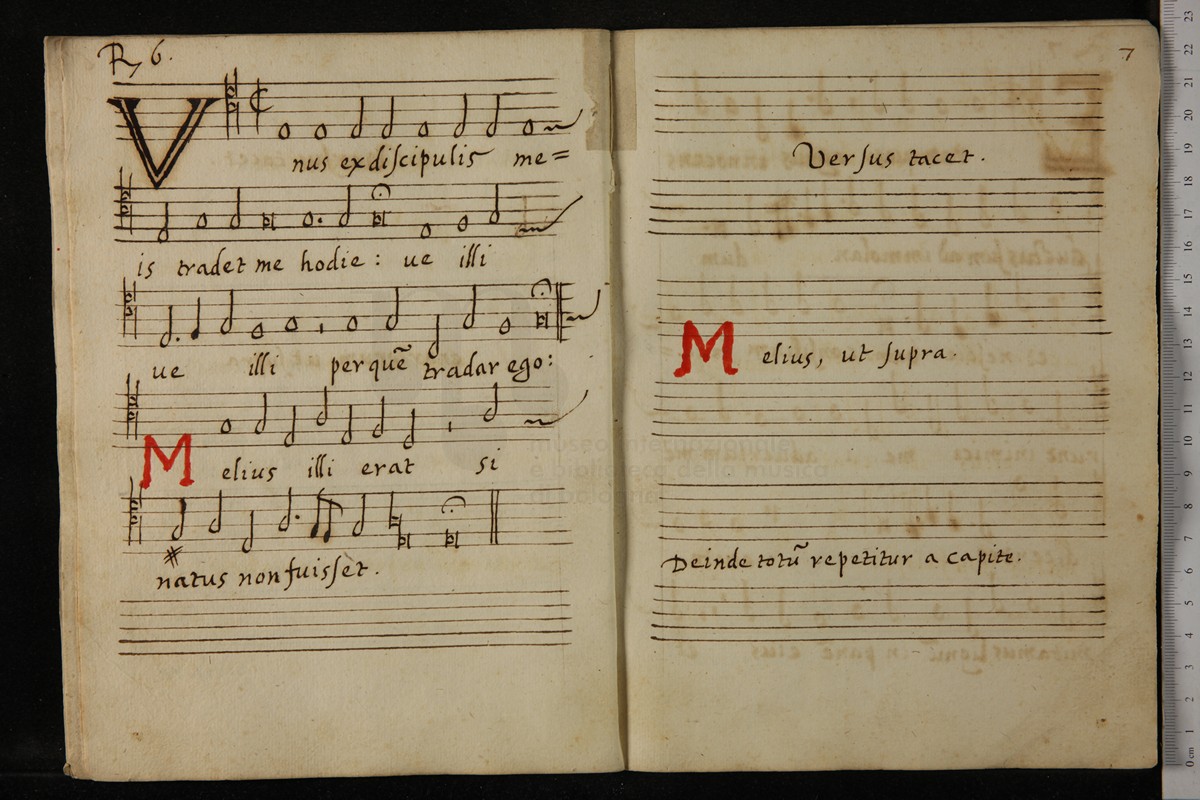 R 6.
Vnus ex discipulis me=
is tradet me hodie: ue illi
ue illi per quē tradar ego:
Melius illi erat si
natus non fuisset.
7
Versus tacet.
Melius, ut supra.
Deinde totū repetitur a capite.
museo internazionale
e biblioteca della musica
di bologna
0 cm 1 2 3 4 5 6 7 8 9 10 11 12 13 14 15 16 17 18 19 20 21 22 23